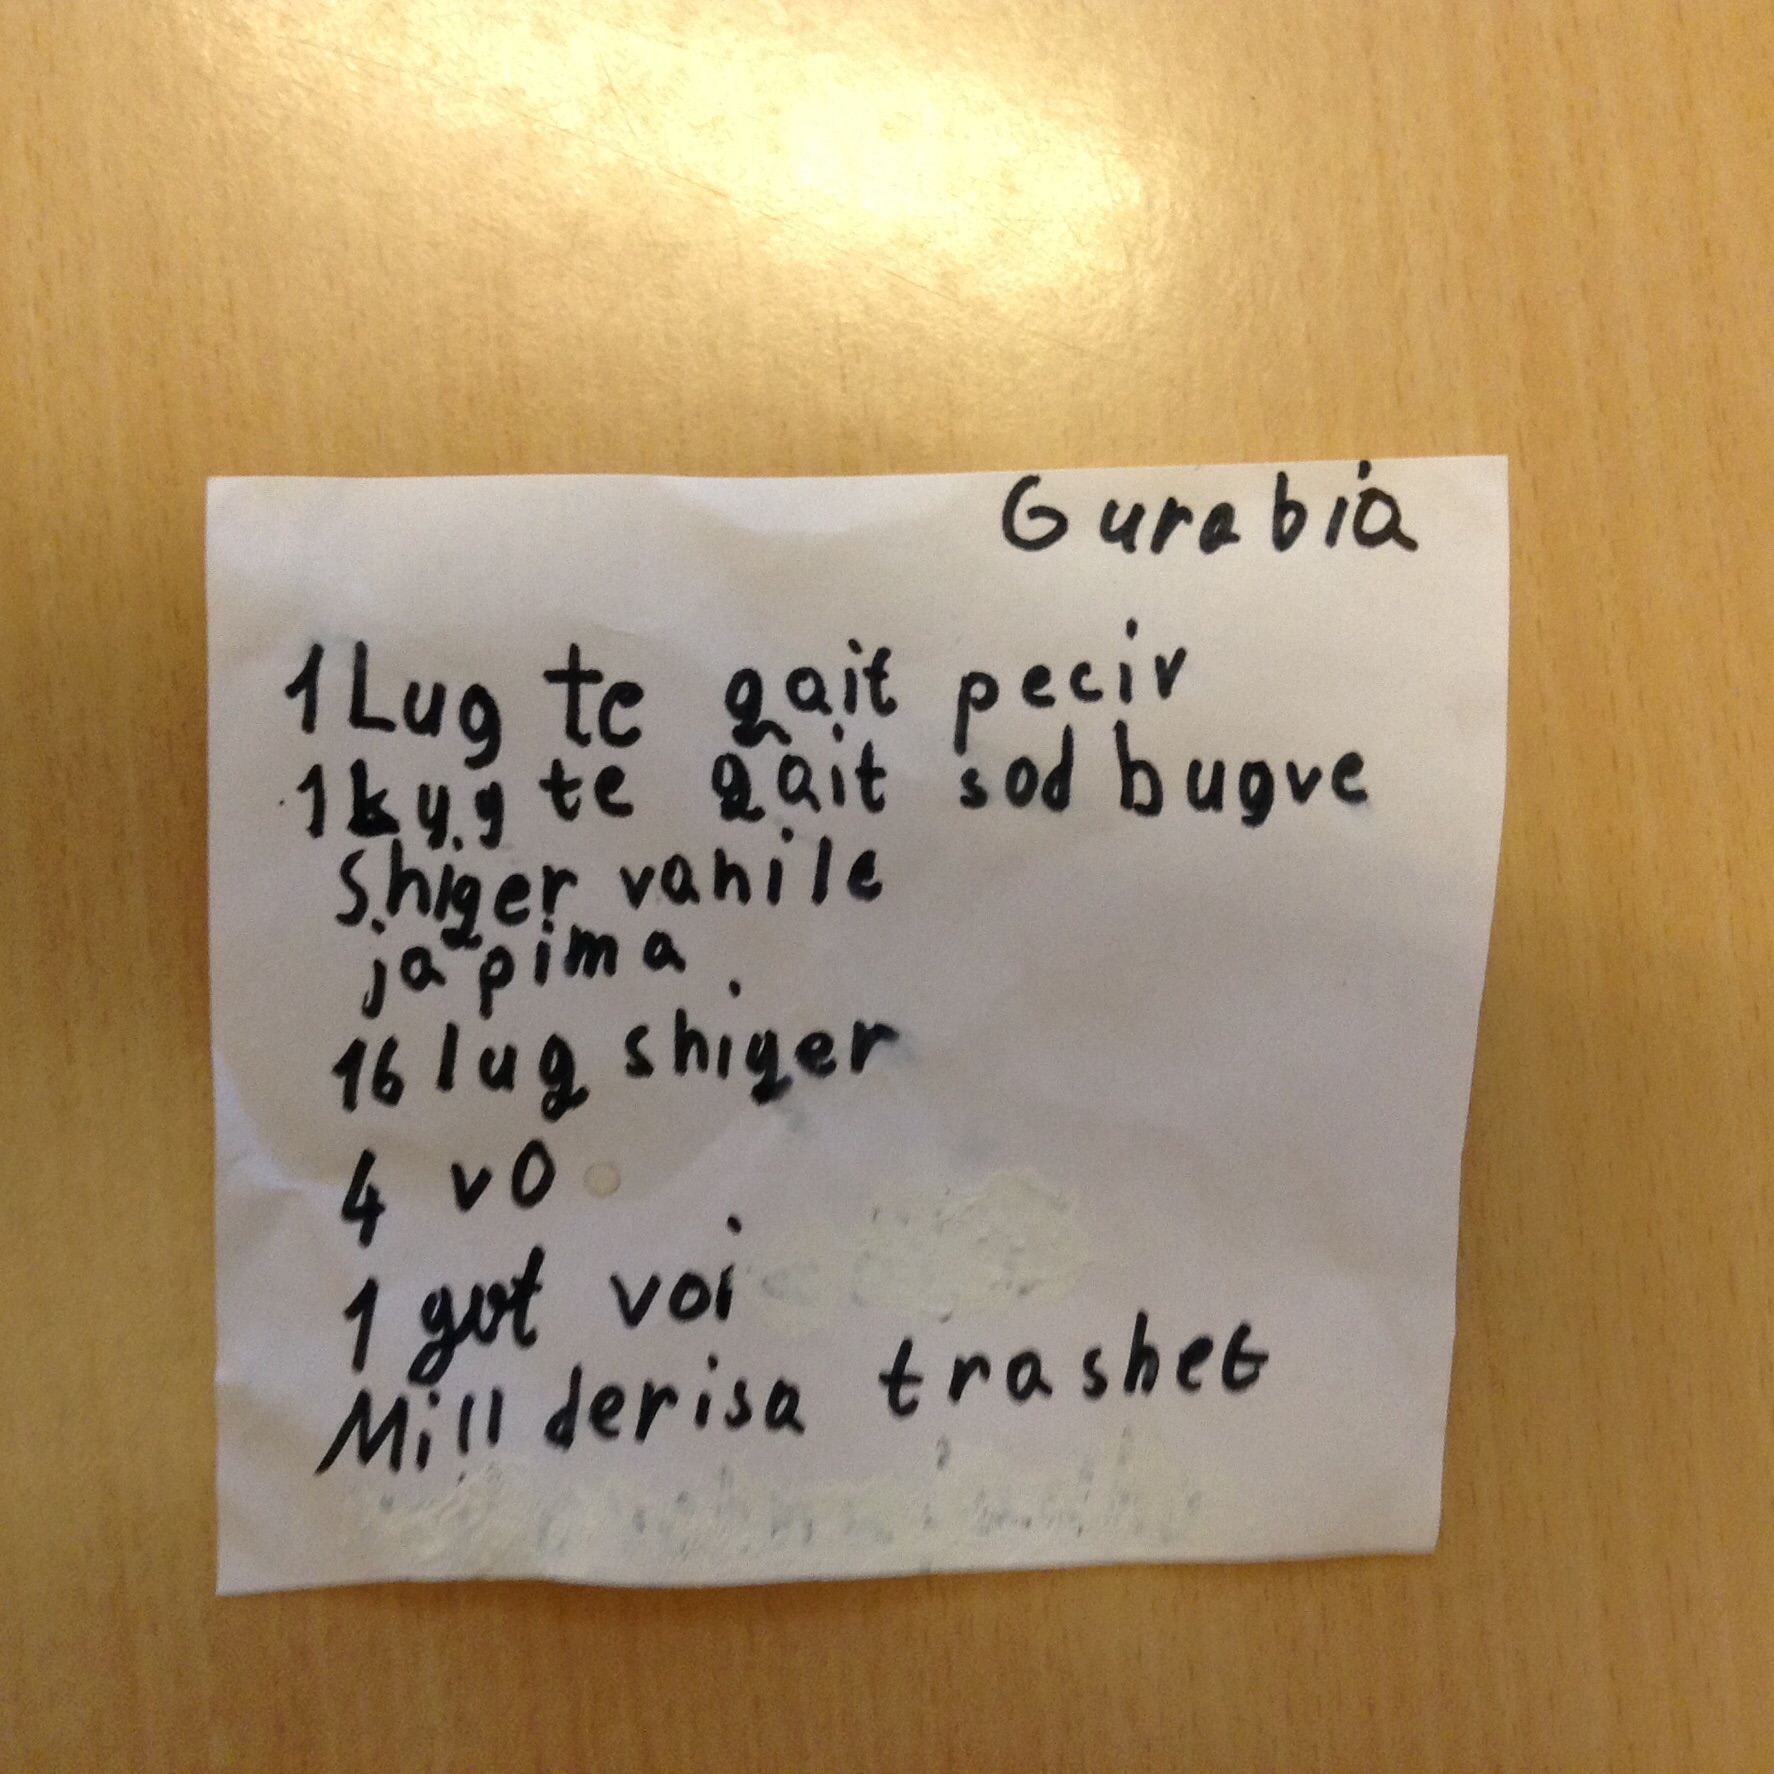 Gurabia
1 Lug te gait peciv
1 kyg te gait sod bugve
Shiger vanile
ja pima
16 lug shiger
4 vo
1 got voi
Mill derisa trashet